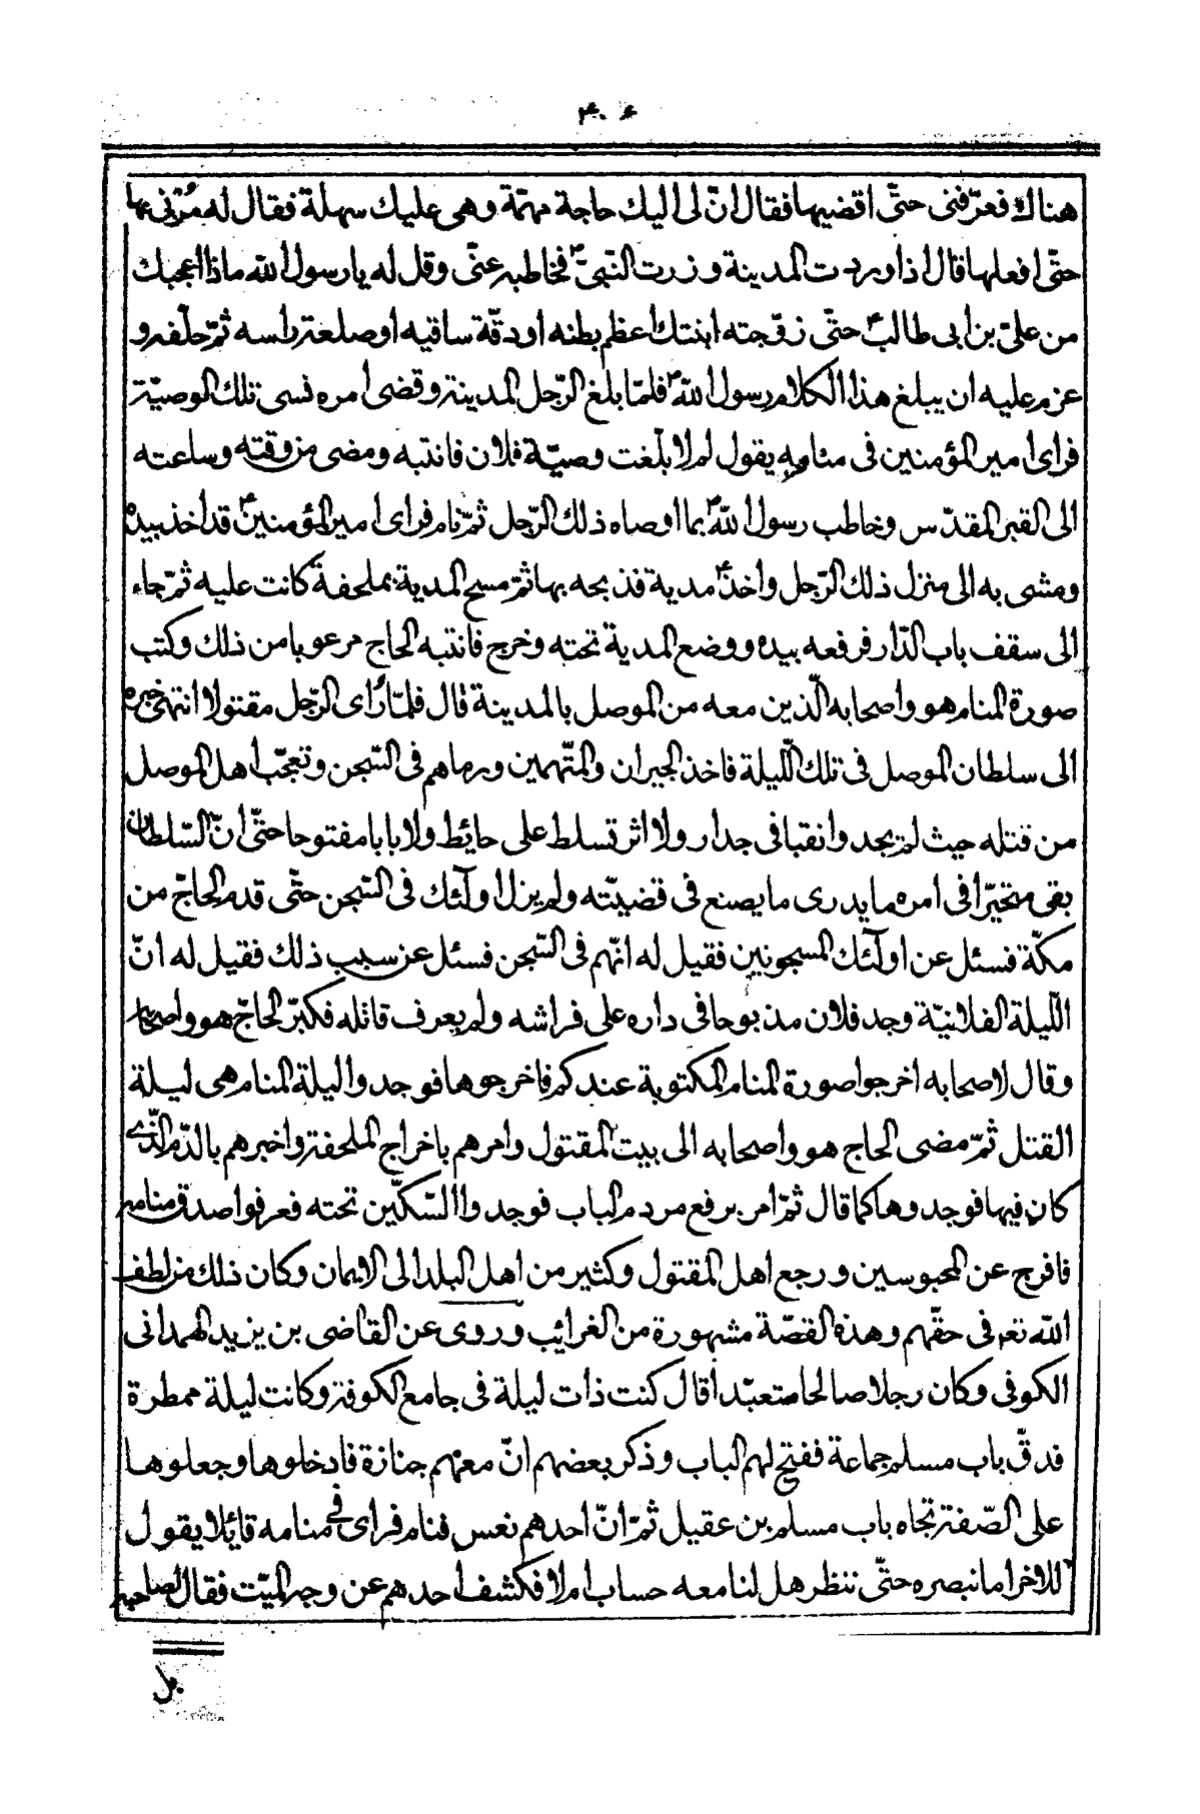 ٣٠٦
هناك فعرّفنى حتّى اقضيها فقال انّ لى اليك حاجة مهمّة وهى عليك سهلة فقال له مُرنى بها
حتّى افعلها قال اذا وردت المدينة وزرت النّبىّ ص فخاطبه عنّى وقل له يا رسول الله ماذا اعجبك
من علىّ بن ابى طالب ع حتّى زوّجته ابنتك اعظم بطنه او دقّة ساقيه او صلعة راسه ثمّ حلّفه و
عزم عليه ان يبلغ هذا الكلام رسول الله ص فلمّا بلغ الرّجل المدينة وقضى امره نسى تلك الوصيّة
فراى امير المؤمنين فى منامه يقول لم لا بلّغت وصيّة فلان فانتبه ومضى من وقته وساعته
الى القبر المقدّس وخاطب رسول الله ص بما اوصاه ذلك الرّجل ثمّ نام فراى امير المؤمنين ع قد اخذ بيده
ومشى به الى منزل ذلك الرّجل واخذ ع مدية فذبحه بها ثمّ مسح المدية بملحفة كانت عليه ثمّ جاء
الى سقف باب الدّار فرفعه بيده ووضع المدية تحته وخرج فانتبه الحاج مرعوبا من ذلك وكتب
صورة المنام هو واصحابه الّذين معه من الموصل بالمدينة قال فلمّا رُاى الرّجل مقتولا انتهى خبره
الى سلطان الموصل فى تلك اللّيلة فاخذ الجيران والمتّهمين ورماهم فى السّجن وتعجّب اهل الموصل
من قتله حيث لم يجدوا نقبا فى جدار ولا اثر تسلط على حائط ولا بابا مفتوحا حتّى انّ السّلطان
بقى متحيّرا فى امره ما يدرى ما يصنع فى قضيّته ولم يزل اولٓئك فى السّجن حتّى قدم الحاجّ من
مكّة فسئل عن اولٓئك المسجونين فقيل له انّهم فى السّجن فسئل عن سبب ذلك فقيل له انّ
اللّيلة الفلانيّة وجد فلان مذبوحا فى داره على فراشه ولم يعرف قاتله فكبّر الحاجّ هو واصحابه
وقال لاصحابه اخرجوا صورة المنام المكتوبة عندكم فاخرجوها فوجدوا ليلة المنام هى ليلة
القتل ثمّ مضى الحاج هو واصحابه الى بيت المقتول وامرهم باخراج الملحفة واخبرهم بالدّم الّذى
كان فيها فوجدوها كما قال ثمّ امر برفع مردم الباب فوجدوا السّكّين تحته فعرفوا صدق منامه
فافرج عن المحبوسين ورجع اهل المقتول وكثير من اهل البلد الى الايمان وكان ذلك من لطف
الله تع فى حقّهم وهذه القصّة مشهورة من الغرائب وروى عن القاضى بن يزيد الهمدانى
الكوفى وكان رجلا صالحا متعبّدا قال كنت ذات ليلة فى جامع الكوفة وكانت ليلة ممطرة
فدقّ باب مسلم جماعة ففتح لهم الباب وذكر بعضهم انّ معهم جنازة فادخلوها وجعلوها
على الصّفة تجاه باب مسلم بن عقيل ثمّ انّ احدهم نعس فنام فراى فى منامه قائلا يقول
للاخر اما نبصره حتّى ننظر هل لنا معه حساب ام لا فكشف احدهم عن وجه الميّت فقال لصاحبه
بل